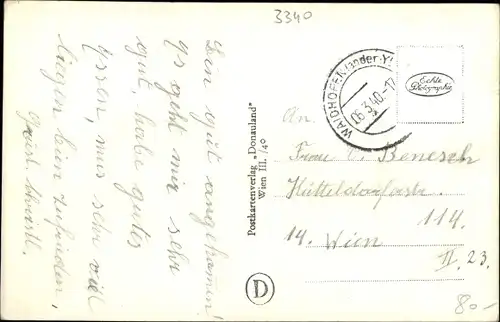 3340
Bin gut angekommen!
es geht mir sehr
gut, habe gutes
Essen, muss sehr viel
liegen bin zufrieden,
Postkartenverlag „Donauland"
Wien III./40
D
WAIDHOFEN an der Y
06.3.40-17
Echte
Photographie
An.
Frau C. Benesch
Hütteldorferstr.
114.
14. Wien
II. 23.
80-